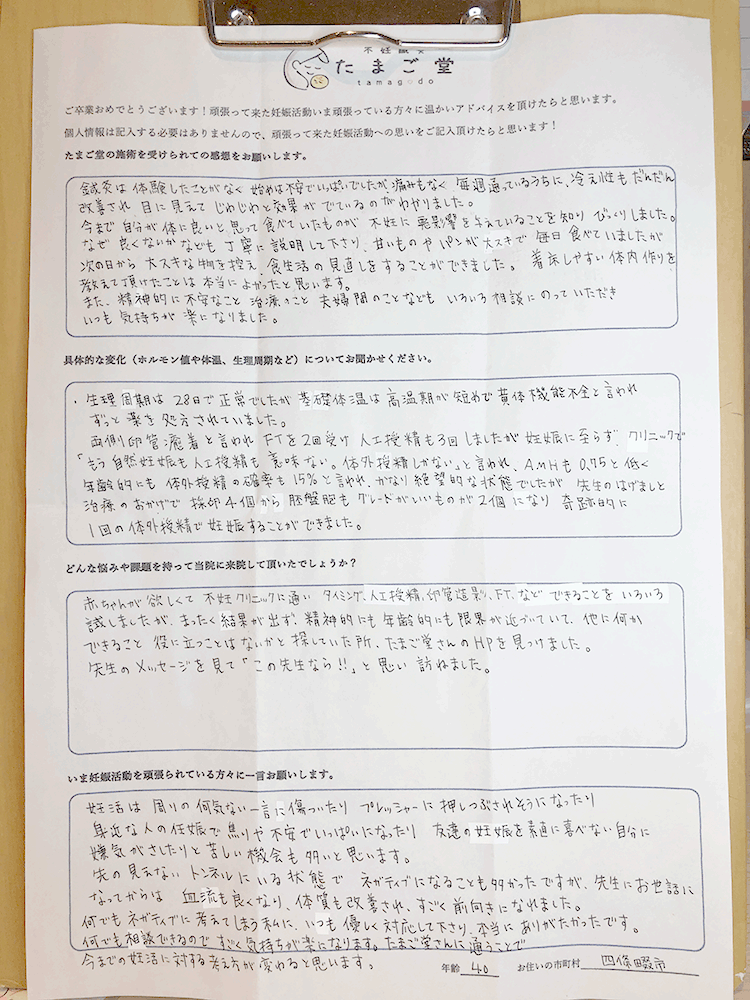 不妊鍼灸
たまご堂
tamagodo
ご卒業おめでとうございます！頑張って来た妊娠活動いま頑張っている方々に温かいアドバイスを頂けたらと思います。
個人情報は記入する必要はありませんので、頑張って来た妊娠活動への思いをご記入頂けたらと思います！
たまご堂の施術を受けられての感想をお願いします。
鍼灸は体験したことがなく始めは不安でいっぱいでしたが、痛みもなく毎週通っているうちに、冷え性もだんだん
改善され目に見えてじわじわと効果がでているのがわかりました。
今まで自分が体に良いと思って食べていたものが不妊に悪影響を与えていることを知りびっくりしました。
なぜ良くないかなども丁寧に説明して下さり、甘いものやパンが大スキで毎日食べていましたが
次の日から大スキな物を控え、食生活の見直しをすることができました。着床しやすい体内作りを
教えて頂けたことは本当によかったと思います。
また、精神的に不安なこと治療のこと夫婦間のことなどもいろいろ相談にのっていただき
いつも気持ちが楽になりました。
具体的な変化（ホルモン値や体温、生理周期など）についてお聞かせください。
・生理周期は28日で正常でしたが基礎体温は高温期が短めで黄体機能不全と言われ
ずっと薬を処方されていました。
両側卵管癒着と言われFTを2回受け人工授精も3回しましたが妊娠に至らず、クリニックで
「もう自然妊娠も人工授精も意味ない。体外授精しかない」と言われ、AMHも0.75と低く
年齢的にも体外授精の確率も15%と言われ、かなり絶望的な状態でしたが先生のはげましと
治療のおかげで採卵4個から胚盤胞もグレードがいいものが2個になり奇跡的に
1回の体外授精で妊娠することができました。
どんな悩みや課題を持って当院に来院して頂いたでしょうか？
赤ちゃんが欲しくて不妊クリニックに通いタイミング、人工授精、卵管造影、FT、などできることをいろいろ
試しましたが、まったく結果が出ず、精神的にも年齢的にも限界が近づいていて、他に何か
できること役に立つことはないかと探していた所、たまご堂さんのHPを見つけました。
先生のメッセージを見て「この先生なら!!」と思い訪ねました。
いま妊娠活動を頑張られている方々に一言お願いします。
妊活は周りの何気ない一言に傷ついたりプレッシャーに押しつぶされそうになったり
身近な人の妊娠で焦りや不安でいっぱいになったり友達の妊娠を素直に喜べない自分に
嫌気がさしたりと苦しい機会も多いと思います。
先の見えないトンネルにいる状態でネガティブになることも多かったですが、先生にお世話に
なってからは血流も良くなり、体質も改善され、すごく前向きになれました。
何でもネガティブに考えてしまう私に、いつも優しく対応して下さり、本当にありがたかったです。
何でも相談できるのですごく気持ちが楽になります。たまご堂さんに通うことで
今までの妊活に対する考え方が変わると思います。
年齢 40 お住いの市町村 四條畷市